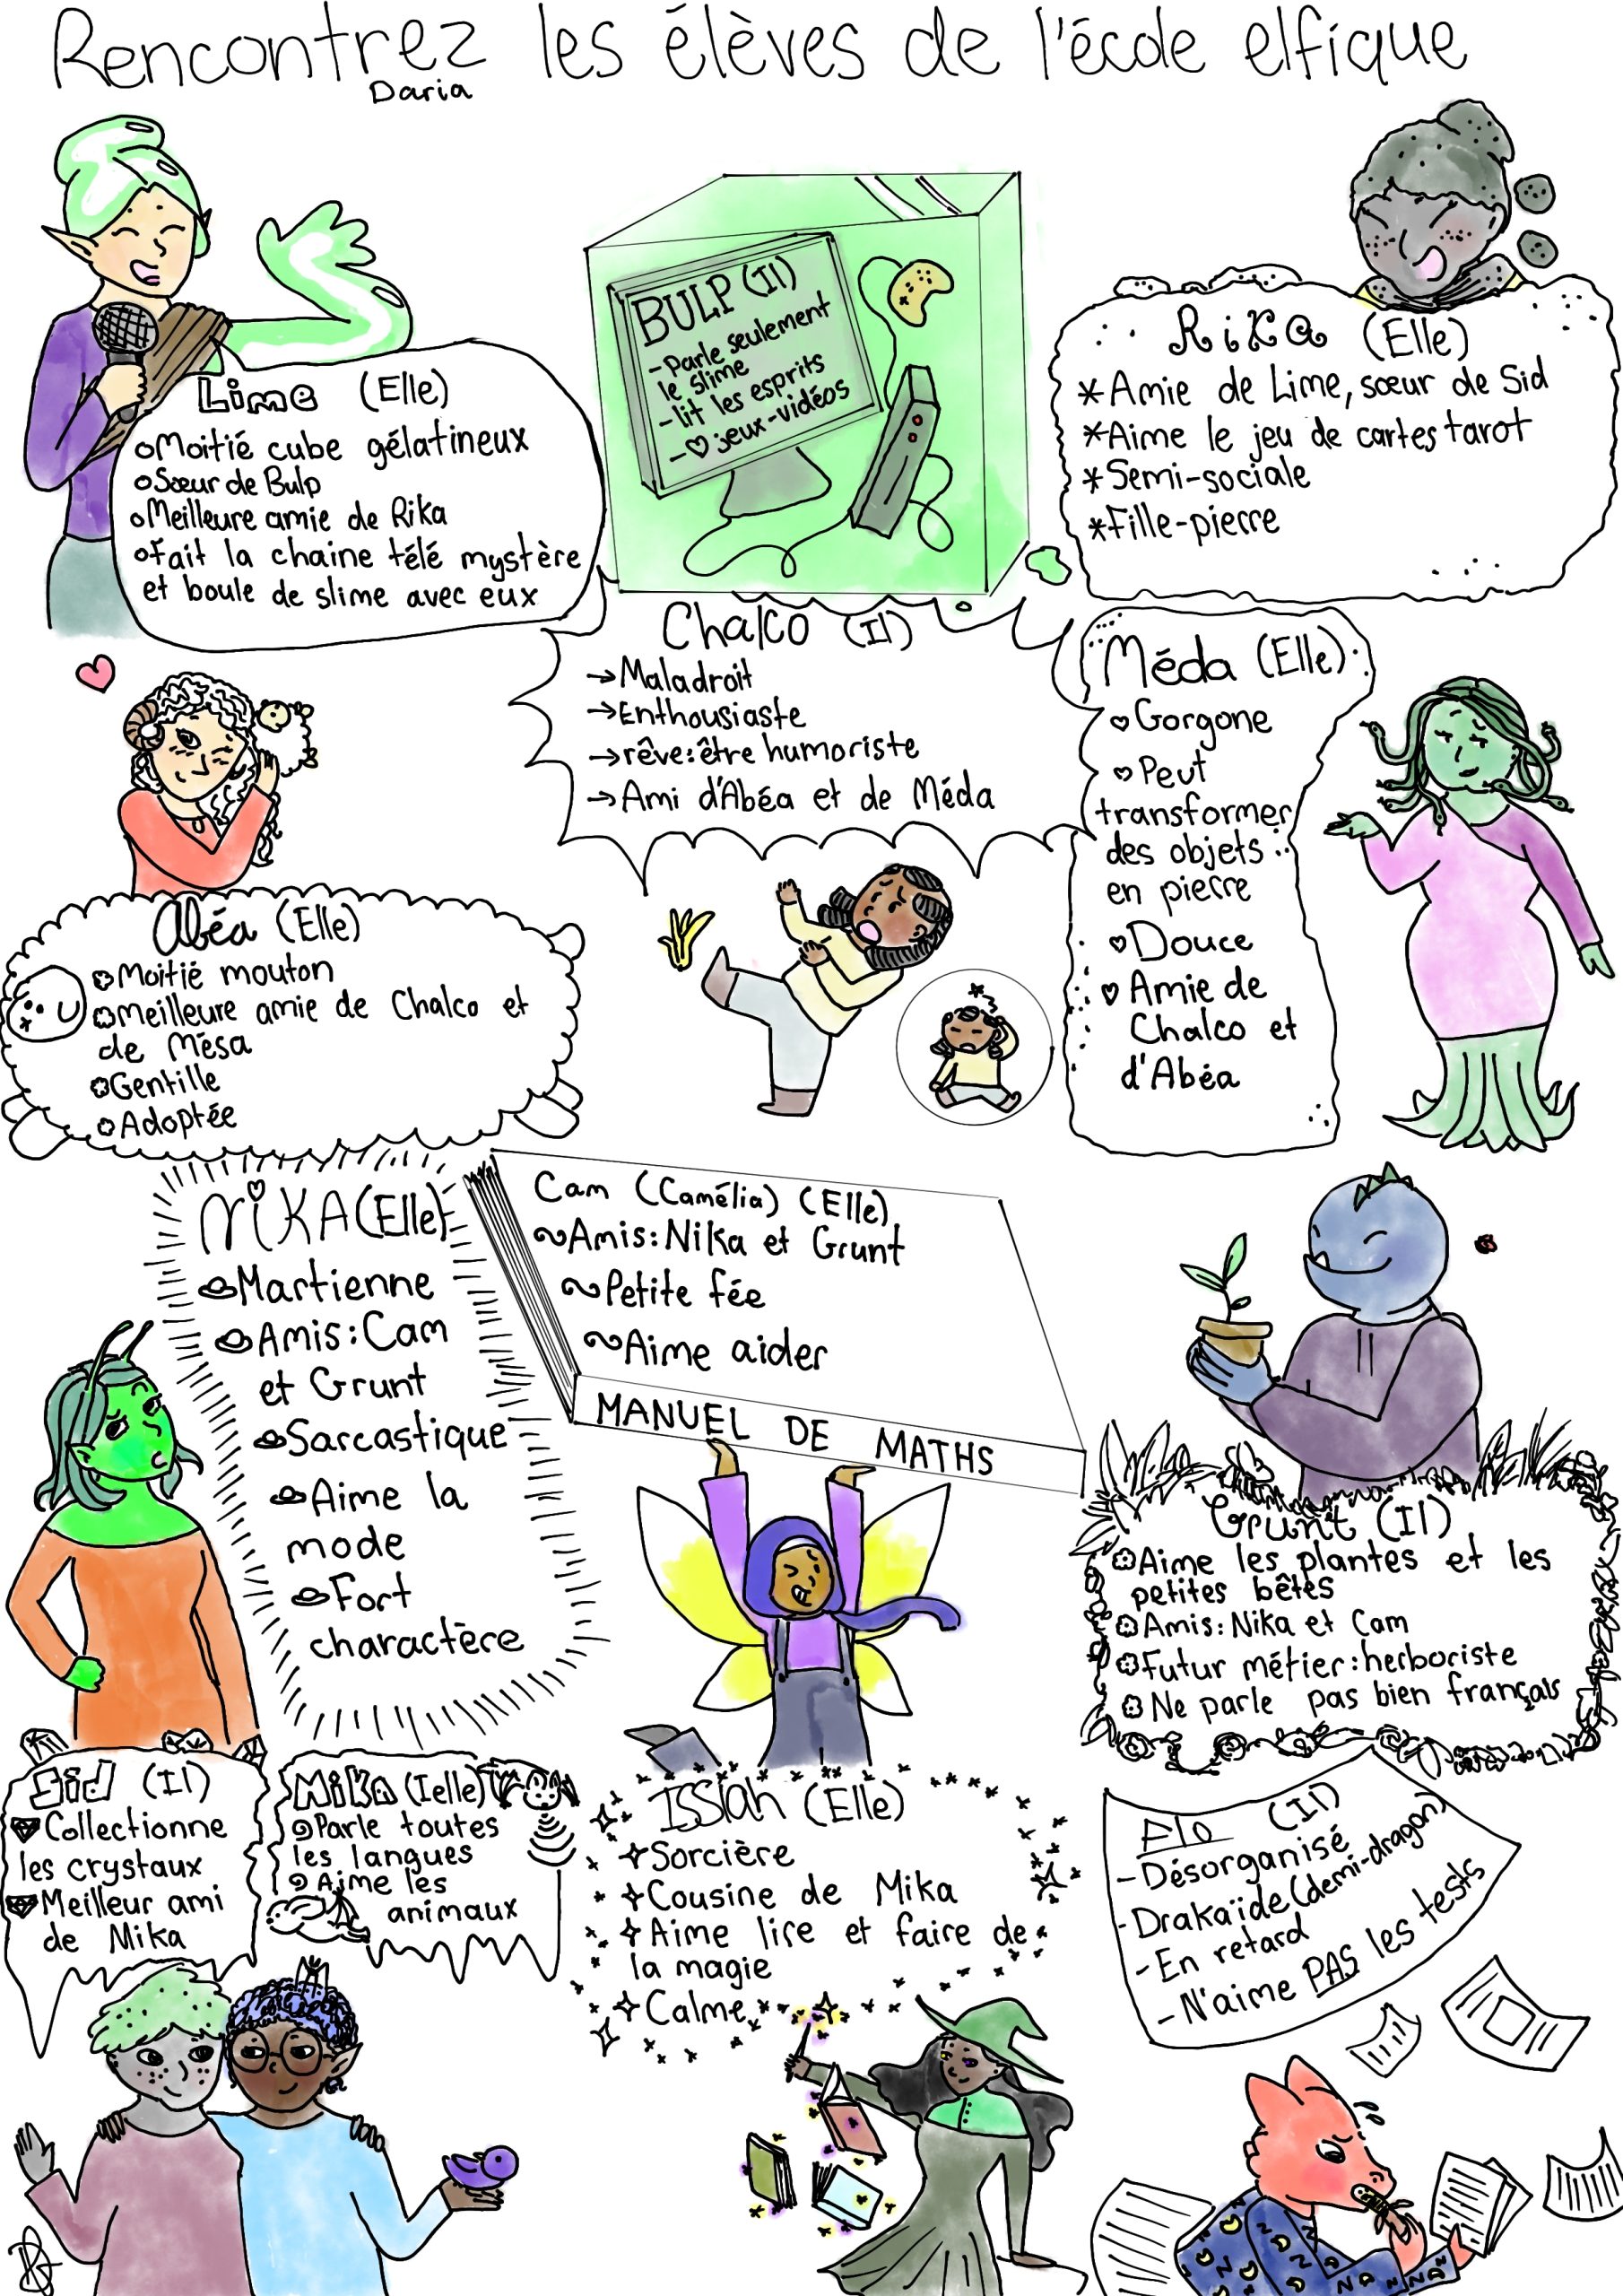 Rencontrez les élèves de l'école elfique
Daria
Lime (Elle)
Moitié cube gélatineux
Sœur de Bulp
Meilleure amie de Rika
Fait la chaine télé mystère
et boule de slime avec eux
BULP (Il)
-Parle seulement
le slime
-lit les esprits
-♡ jeux-vidéos
Rika (Elle)
*Amie de Lime, sœur de Sid
*Aime le jeu de cartes tarot
*Semi-sociale
*Fille-pierre
Chalco (Il)
→Maladroit
→Enthousiaste
→rêve:être humoriste
→Ami d'Abéa et de Méda
Méda (Elle)
♡Gorgone
♡Peut
transformer
des objets
en pierre
♡Douce
♡Amie de
Chalco et
d'Abéa
Abéa (Elle)
Moitié mouton
Meilleure amie de Chalco et
de Mésa
Gentille
Adoptée
NiKA (Elle)
Martienne
Amis: Cam
et Grunt
Sarcastique
Aime la
mode
Fort
charactère
Cam (Camélia) (Elle)
~Amis: Nika et Grunt
~Petite fée
~Aime aider
MANUEL DE MATHS
Grunt (Il)
Aime les plantes et les
petites bêtes
Amis: Nika et Cam
Futur métier: herboriste
Ne parle pas bien français
Sid (Il)
Collectionne
les crystaux
Meilleur ami
de Mika
Mika (Ielle)
Parle toutes
les langues
Aime les
animaux
Issiah (Elle)
Sorcière
Cousine de Mika
Aime lire et faire de
la magie
Calme
Flo (Il)
-Désorganisé
-Drakaïde (demi-dragon)
-En retard
-N'aime PAS les tests